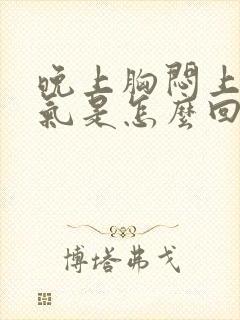 晚上胸悶上
氣是怎麼回
博塔弗戈